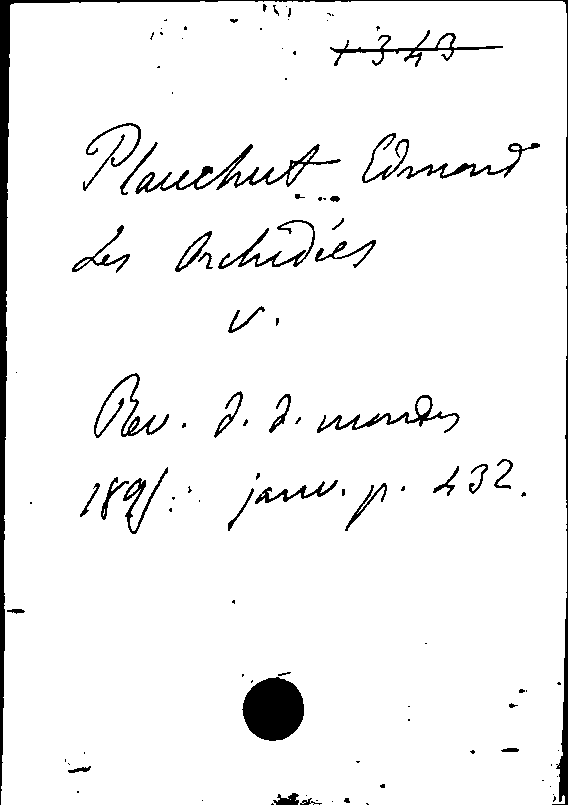 1343
Plauchut Edmond
Les Orchidées
v.
Rev. d. d. mondes
1891: janv. p. 432.